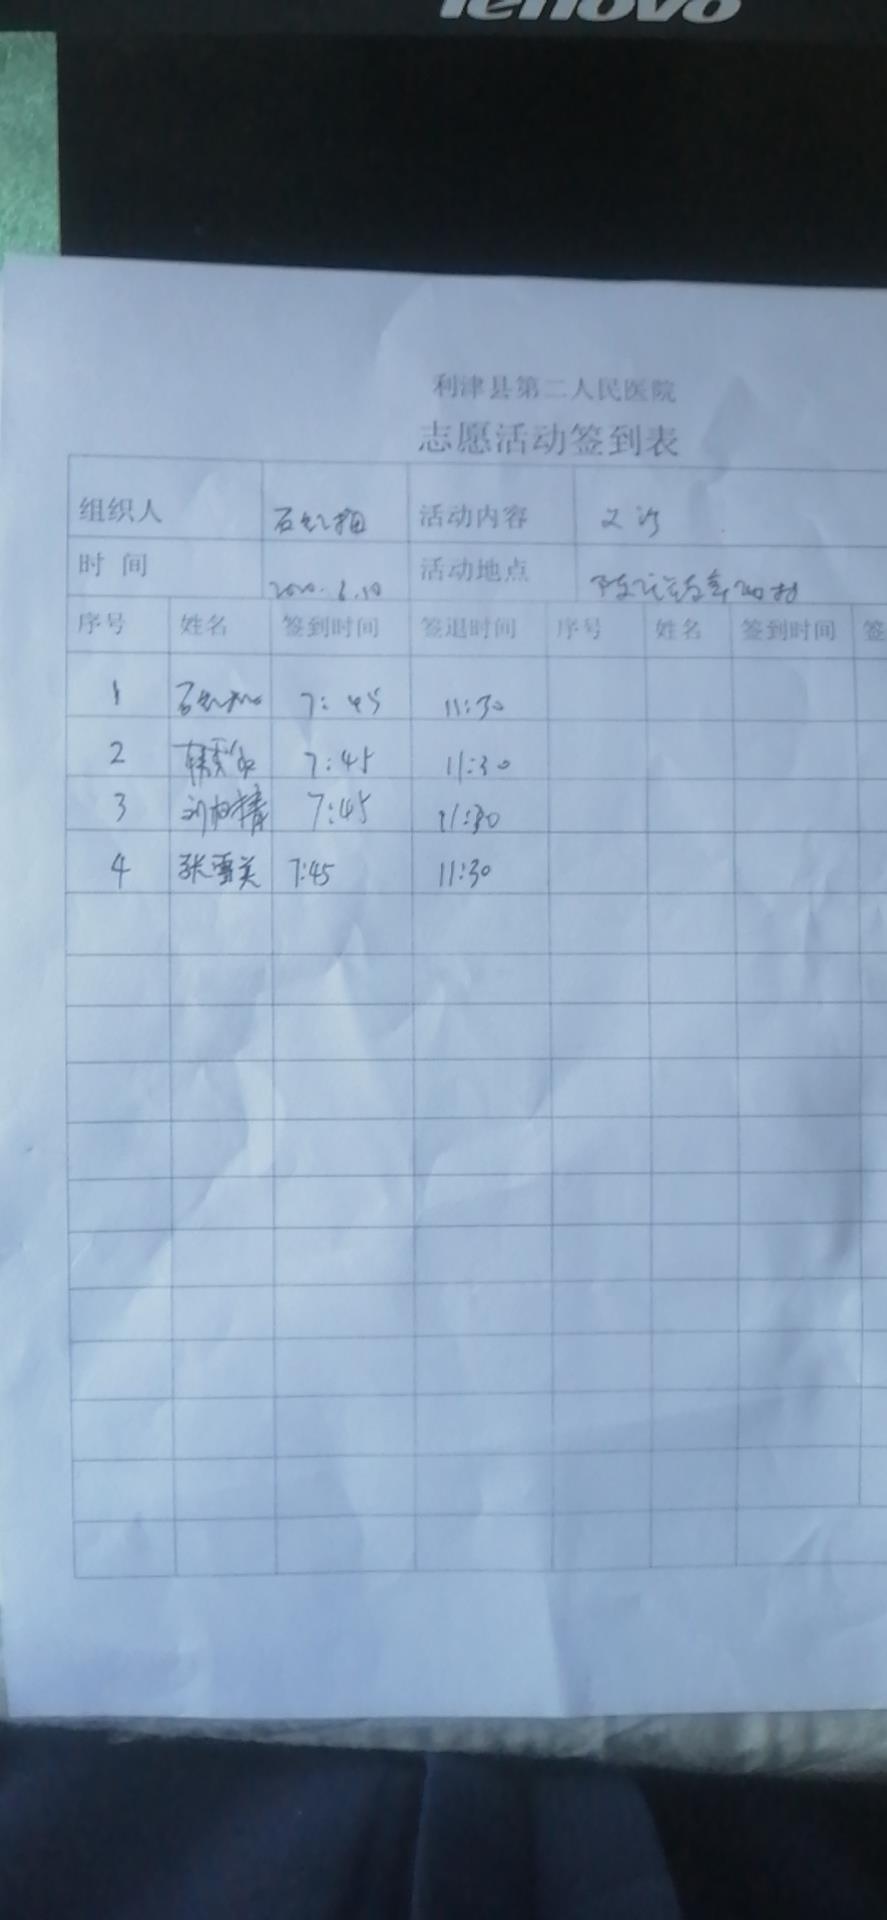 lenovo
利津县第二人民医院
志愿活动签到表
组织人 活动内容 义诊
时 间 2020.6.10 活动地点
序号 姓名 签到时间 签退时间 序号 姓名 签到时间 签
1 7:45 11:30
2 7:45 11:30
3 7:45 11:30
4 张雪美 7:45 11:30